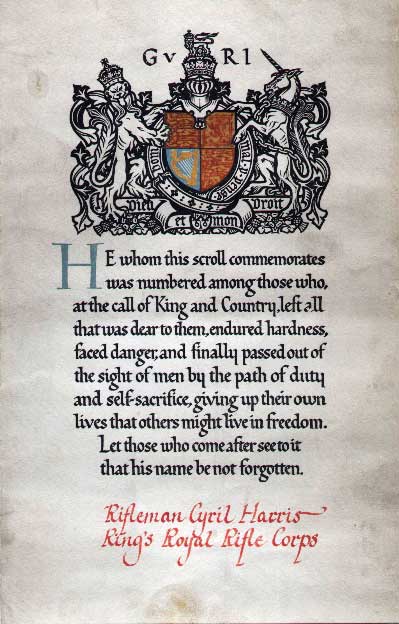 G V R I
Honi soit qui mal y pense
Dieu et mon Droit
HE whom this scroll commemorates
was numbered among those who,
at the call of King and Country, left all
that was dear to them, endured hardness,
faced danger, and finally passed out of
the sight of men by the path of duty
and self-sacrifice, giving up their own
lives that others might live in freedom.
Let those who come after see to it
that his name be not forgotten.
Rifleman Cyril Harris
King's Royal Rifle Corps